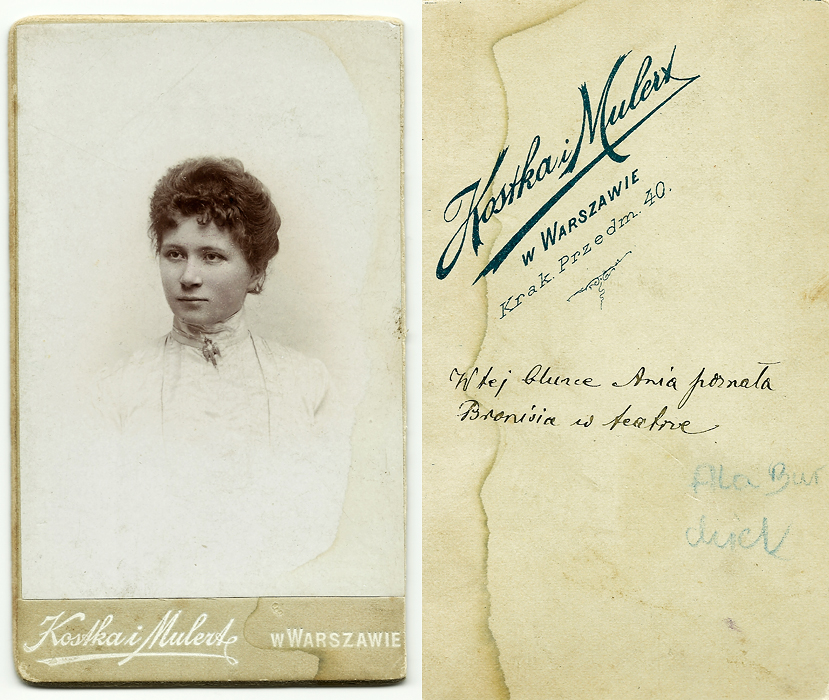 Kostka i Mulert
W WARSZAWIE
Kostka i Mulert
W WARSZAWIE
Krak. Przedm. 40.
W tej bluzce Ania poznała
Bronisia w teatrze